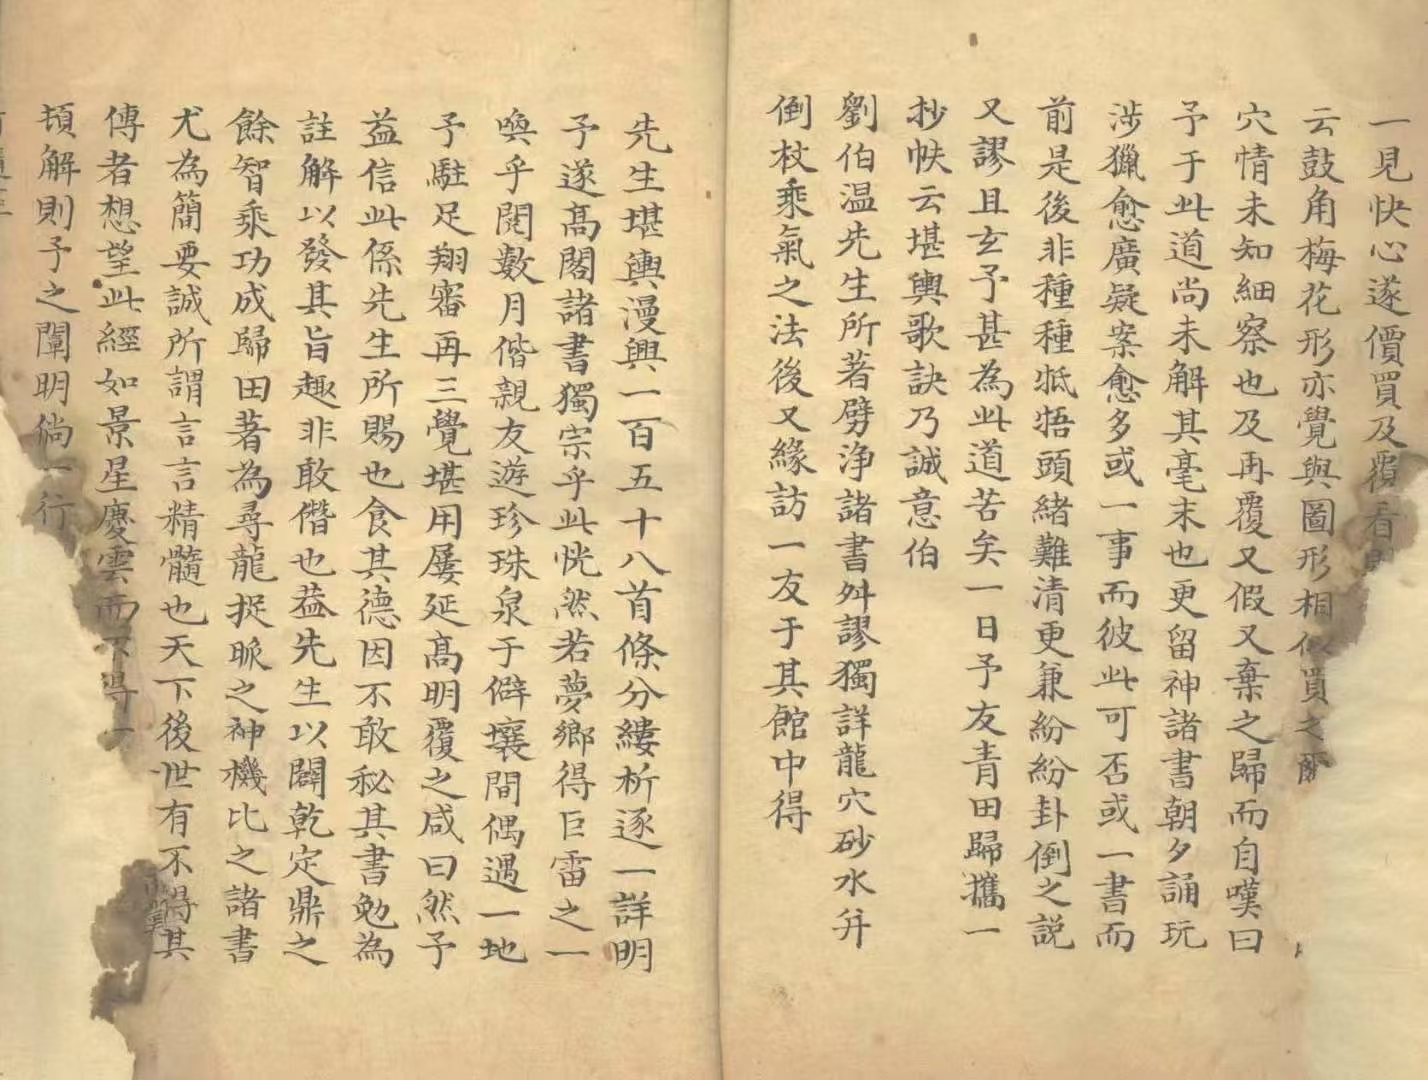 一見快心遂價買及覆看
云鼓角梅花形亦覺與圖形相似買之
穴情未知細察也及再覆又假又棄之歸而自嘆曰
予于此道尚未解其毫末也更留神諸書朝夕誦玩
涉獵愈廣疑案愈多或一事而彼此可否或一書而
前是後非種種牴牾頭緒難清更兼紛紛卦倒之説
又謬且玄予甚為此道苦矣一日予友青田歸攜一
抄帙云堪輿歌訣乃誠意伯
劉伯温先生所著劈浄諸書舛謬獨詳龍穴砂水并
倒杖乘氣之法後又緣訪一友于其館中得
先生堪輿漫興一百五十八首條分縷析逐一詳明
予遂高閣諸書獨宗乎此恍然若夢鄉得巨雷之一
喚乎閱數月偕親友遊珍珠泉于僻壤間偶遇一地
予駐足翔審再三覺堪用屢延高明覆之咸曰然予
益信此係先生所賜也食其德因不敢秘其書勉為
註解以發其旨趣非敢僭也葢先生以闢乾定鼎之
餘智乘功成歸田著為尋龍捉脈之神機比之諸書
尤為簡要誠所謂言言精髓也天下後世有不得其
傳者想望此經如景星慶雲而不得一
頓解則予之闡明倘一行